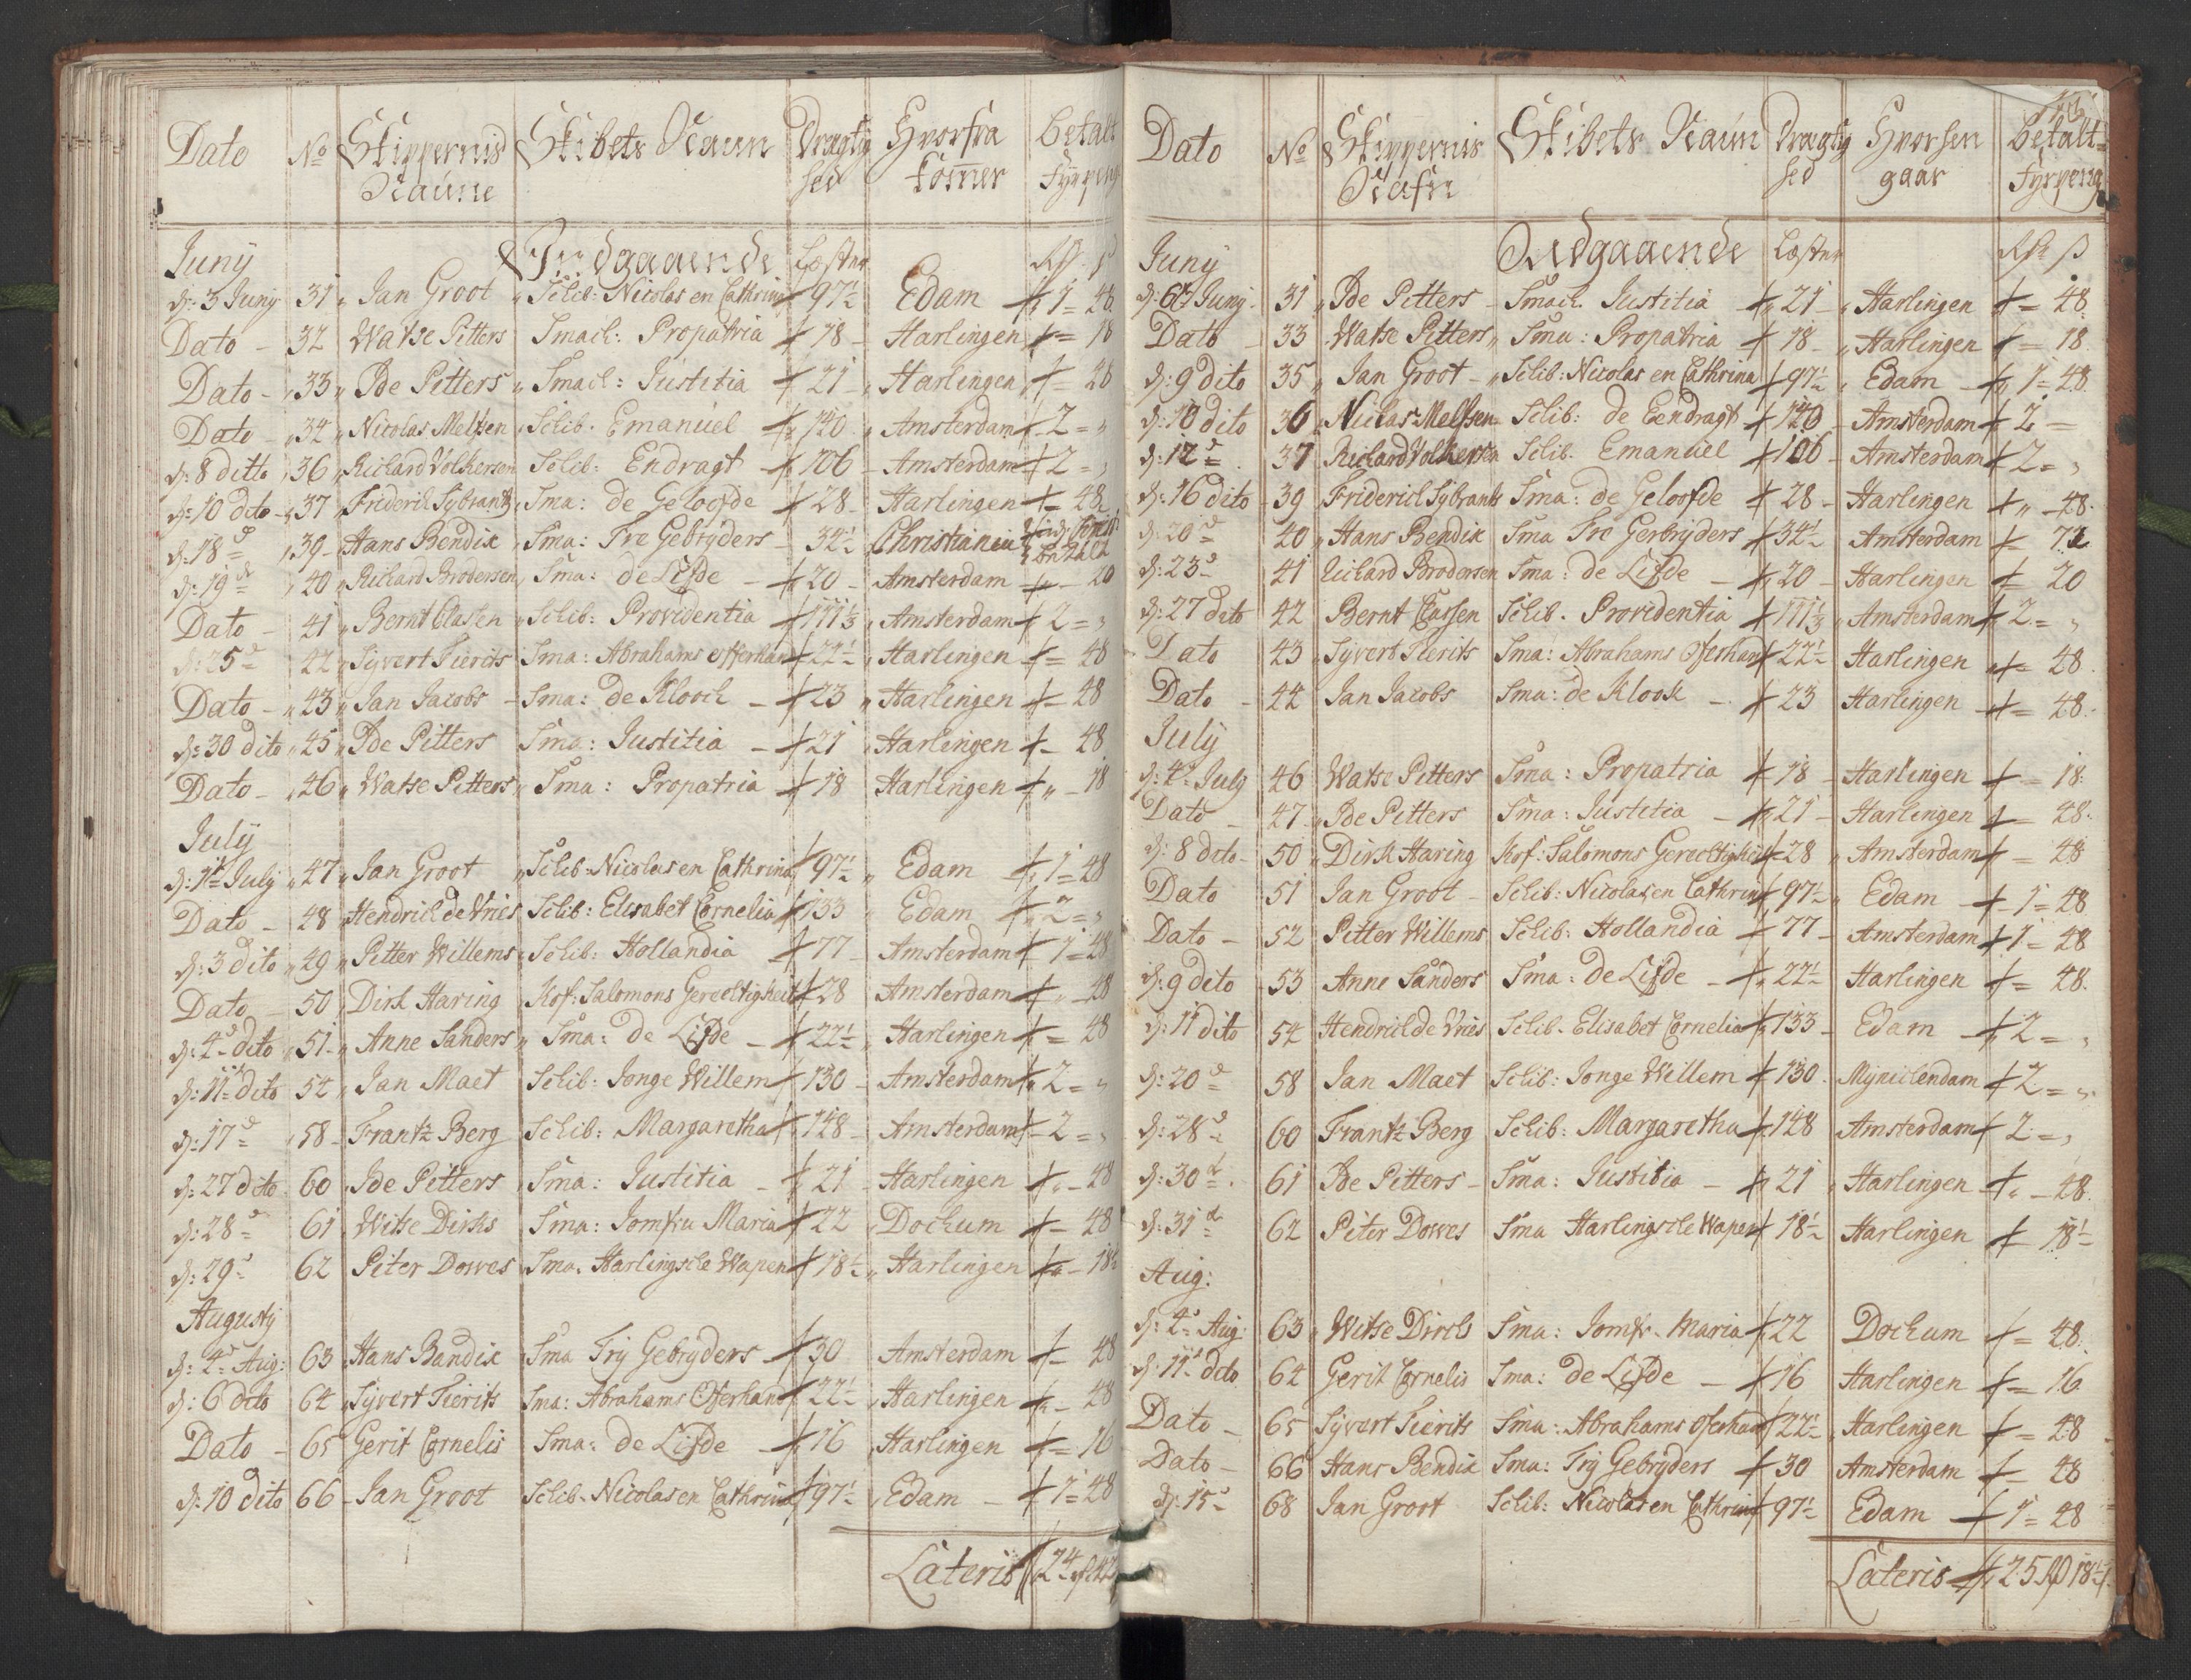 Dato No Skippernis Skibets Naun Drægtig Hvorfra Betalt
Naune hed komer Fyrpeng
Juny Indgaaende Læster Rdr ß
d: 3 Juny 31 Jan Groot Schib: Nicolas en Cathrina 97½ Edam 1 = 48
Dato - 32 Watse Pitters Smack: Propatria 18 - Harlingen = 18
Dato - 33 Ide Pitters Smack: Justitia 21 - Harlingen = 28
Dato - 34 Nicolas Melssen Schib. Emanuel 140 Amsterdam 2 = "
d: 8 ditto 36 Richard Volkersen Schib: Endragt 106 - Amsterdam 2 = "
d: 10 dito 37 Friderich Sybrants Sma: de Geloofde 28 - Harlingen = 48
d: 18 d 39 - Hans Bendix Sma: Fre Gebryders - 34½ Christiania
d: 19 d 40 Richard Brodersen Sma: de Lifde - 20 - Amsterdam - 20
Dato - 41 Bernt Clasen Schib: Providentia 111⅓ Amsterdam 2 = "
d: 25 d 42 Syvert Tierits Sma: Abrahams Offerhand 22½ Harlingen = 48
Dato - 43 Jan Jacobs - Sma: de Kloock - 23 Harlingen = 48
d: 30 dito 45 Ide Pitters Sma: Justitia - 21 Harlingen - 48
Dato - 46 Watse Pitters Sma: Propatria 18 Harlingen " - 18
July
d: 1t July 47 Jan Groot Schib: Nicolas en Cathrina 97½ Edam 1 = 48
Dato - 48 Hendrich de Vries Schib: Elisabet Cornelia 133 Edam 2 = "
d: 3 dito 49 Pitter Willems Schib: Hollandia 77 - Amsterdam 1 = 48
Dato - 50 Dirk Haring Kof: Salomons Gerechtigheit 28 Amsterdam " - 48
d: 4 dito 51 - Anne Sanders Sma: de Lifde - 22½ Harlingen = 48
d: 11 dito 54 Jan Maet Schib: Jonge Willem 130 - Amsterdam 2 = "
d: 17 d 58 - Frantz Berg Schib: Margaretha 148 - Amsterdam 2 = "
d: 27 dito 60 Ide Pitters Sma: Justitia - 21 Harlingen " - 48
d: 28 d 61 Witse Dirks Sma: Jomfru Maria 22 Dockum - 48
d: 29 62 Piter Dowes Sma. Harlingsche Wapen 18½ Harlingen " - 18½
Augusty
d: 4 Aug: 63 Hans Bandix Sma Fry Gebryders 30 Amsterdam - 48
d: 6 dito 64 Syvert Tierits Sma: Abrahams Offerhand 22½ Harlingen - 48
Dato - 65 Gerit Cornelis Sma: de Lifde - 16 Harlingen = 16
d: 10 dito 66 - Jan Groot Schib. Nicolas en Cathrina 97½ Edam - 1 = 48
Lateris 24 42
Dato No Skippernis Skibets Naun Drægtig Hvorhen Betalt
Nafn hed gaar Fyrpeng
Juny Udgaaende Læster Rdr ß
d: 6te Juny 31 Ide Pitters - Smack Justitia 21 - Harlingen = 48
Dato - 33 Watse Pitters Sma: Propatria 18 - Harlingen = 18
d: 9 dito 35 Jan Groot - Schib: Nicolas en Cathrina 97½ Edam 1 = 48
d: 10 dito 36 Niclas Melssen Schib: de Eendragt 140 - Amsterdam 2 -
d: 12 d 37 Richard Volkersen Schib. Emanuel 106 - Amsterdam 2 = "
d: 16 dito 39 Friderich Sybrants Sma: de Geloofde 28 - Harlingen " - 48
d: 20 d 40 Hans Bendix Sma Fre Gerbryders 34½ Amsterdam - 72
d: 23 d 41 Richard Brodersen Sma: de Lifde - 20 - Harlingen 20
d: 27 dito 42 Bernt Classen Schib. Providentia 111⅓ Amsterdam 2 = "
Dato 43 Syvert Tierits Sma: Abrahams Offerhand 22½ Harlingen = 48
Dato - 44 Jan Jacobs Sma: de Klook - 23 Harlingen = 48
July
d: 4 July 46 Watse Pitters Sma: Propatria 18 - Harlingen = 18
Dato - 47 Ide Pitters Sma: Justitia - 21 - Harlingen = 48
d: 8 dito 50 Dirk Haring Kof: Salomons Gerechtigheit 28 Amsterdam = 48
Dato 51 Jan Groot - Schib: Nicolas en Cathrina 97½ Edam - 1 = 48
Dato - 52 Pitter Willems Schib: Hollandia 77 - Amsterdam 1 = 48
d: 9 dito 53 Anne Sanders Sma: de Lifde - 22½ Harlingen = 48
d: 11 dito 54 Hendrich de Vries Schib. Elisabet Cornelia 133 - Edam 2 = "
d: 20 d 58 Jan Maet Schib: Jonge Willem 130 Mynickendam 2 = "
d: 28 d 60 Frantz Berg Schib: Margaretha 148 Amsterdam 2 = "
d: 30 d 61 Ide Pitters - Sma: Justitia - 21 Harlingen " - 48
d: 31 d 62 Piter Dowes Sma Harlingsche Wapen 18½ Harlingen 18½
Aug:
d: 4 Aug: 63 Witse Dirck Sma: Jomfr. Maria 22 Dockum = 48
d: 11 dito 64 Gerit Cornelis Sma: de Lifde - 16 Harlingen = 16
Dato - 65 Syvert Tierits Sma: Abrahams Offerhand 22½ Harlingen = 48
Dato - 66 Hans Bendix Sma: Fry Gebryders 30 Amsterdam = 48
d: 15 68 Jan Groot Schib: Nicolas en Cathrina 97½ Edam - 1 = 48
Lateris 25 Rdr 18½ ß